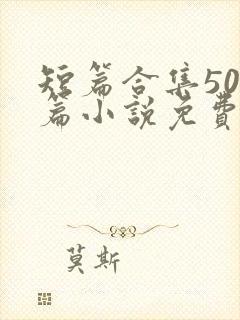 短篇合集50
篇小說免費
莫斯